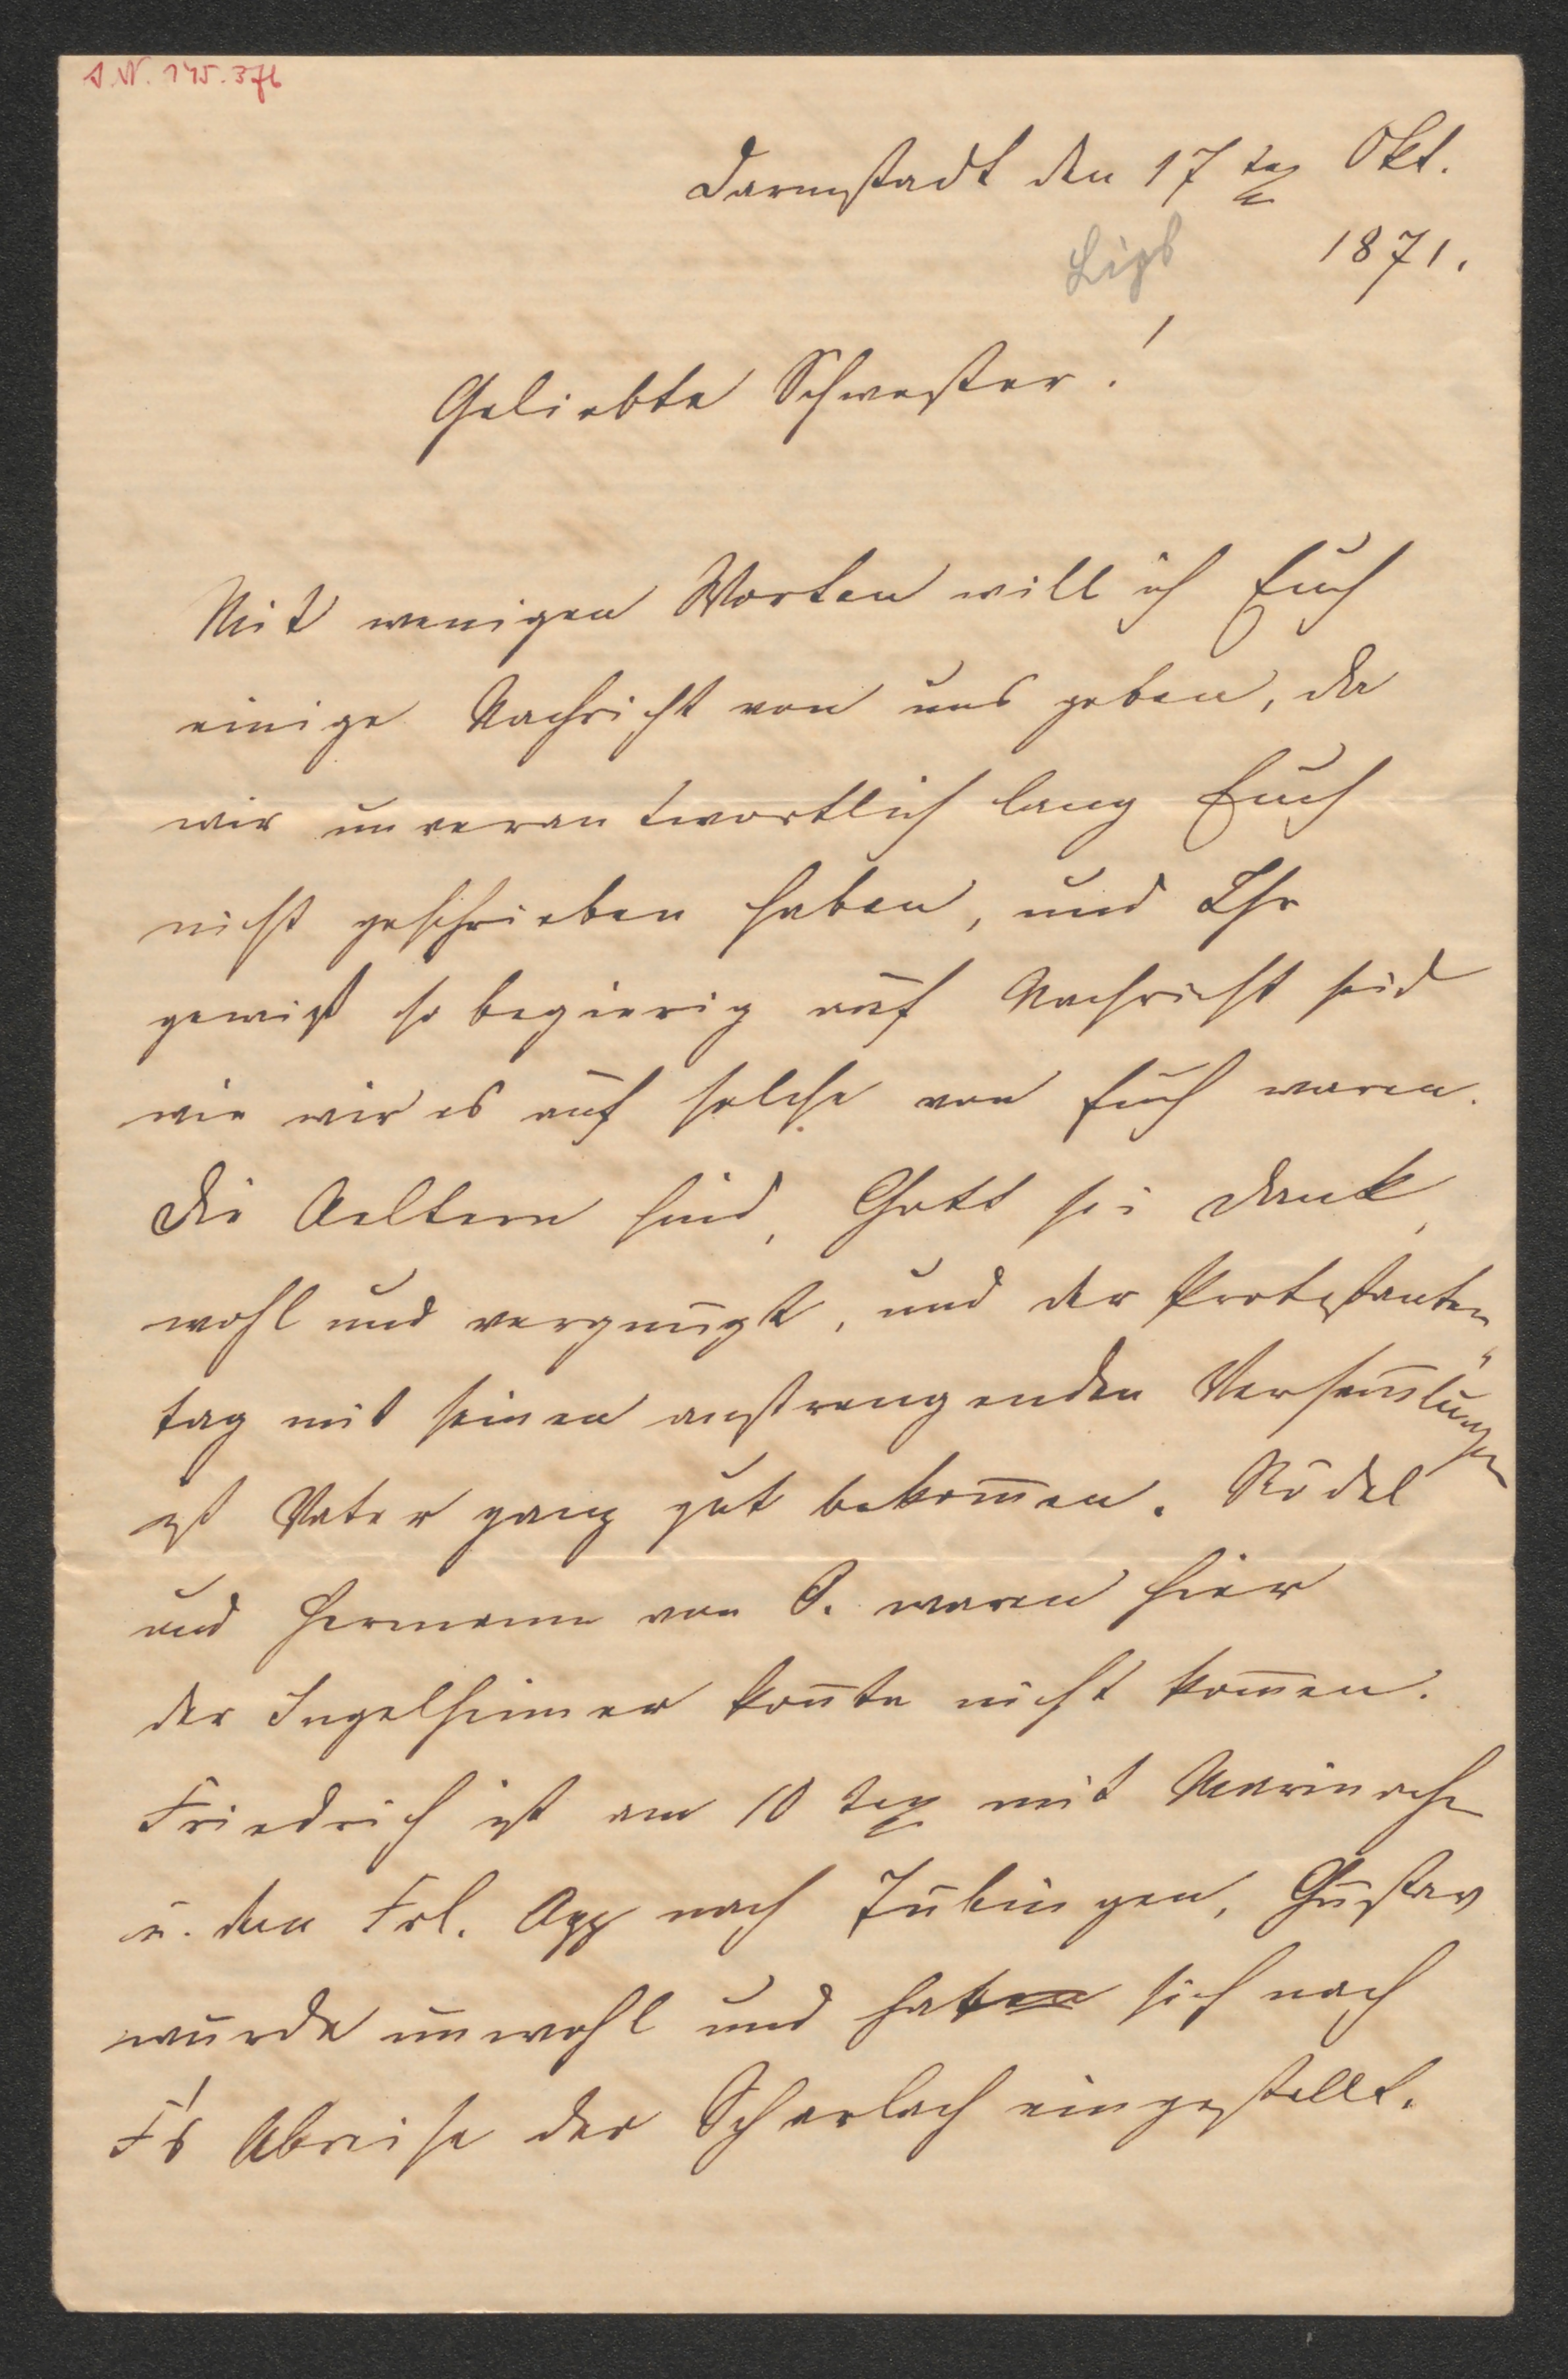 Darmstadt den 17ten Okt.
1871.
Geliebte Schwester!
Mit wenigen Worten will ich Euch
einige Nachricht von uns geben, da
wir unverantwortlich lang Euch
nicht geschrieben haben, und Ihr
gewiß so begierig auf Nachricht seid
wie wir es auf solche von Euch waren.
Die Aeltern sind, Gott sei Dank,
wohl und vergnügt, und der Protestanten-
tag mit seinen anstrengenden Versam̅lungen
ist Vater ganz gut bekom̅en. Rödel
und Hermann von O. waren hier
der Ingelheimer kon̅te nicht kom̅en.
Friedrich ist am 10ten mit
u. den Frl. Opp nach Tübingen, Gustav
wurde unwohl und hat sich nach
F's Abreise der Scharlach eingestellt.